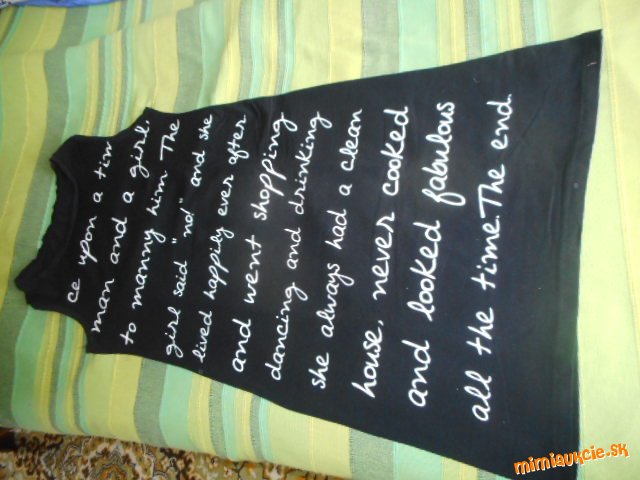 ce upon a tim
man and a girl,
to manny him The
girl said "no" and she
lived happily ever after
and went shopping
dancing and drinking
she always had a clean
house, never cooked
and looked fabulous
all the time. The end.
mimiaukcie.sk